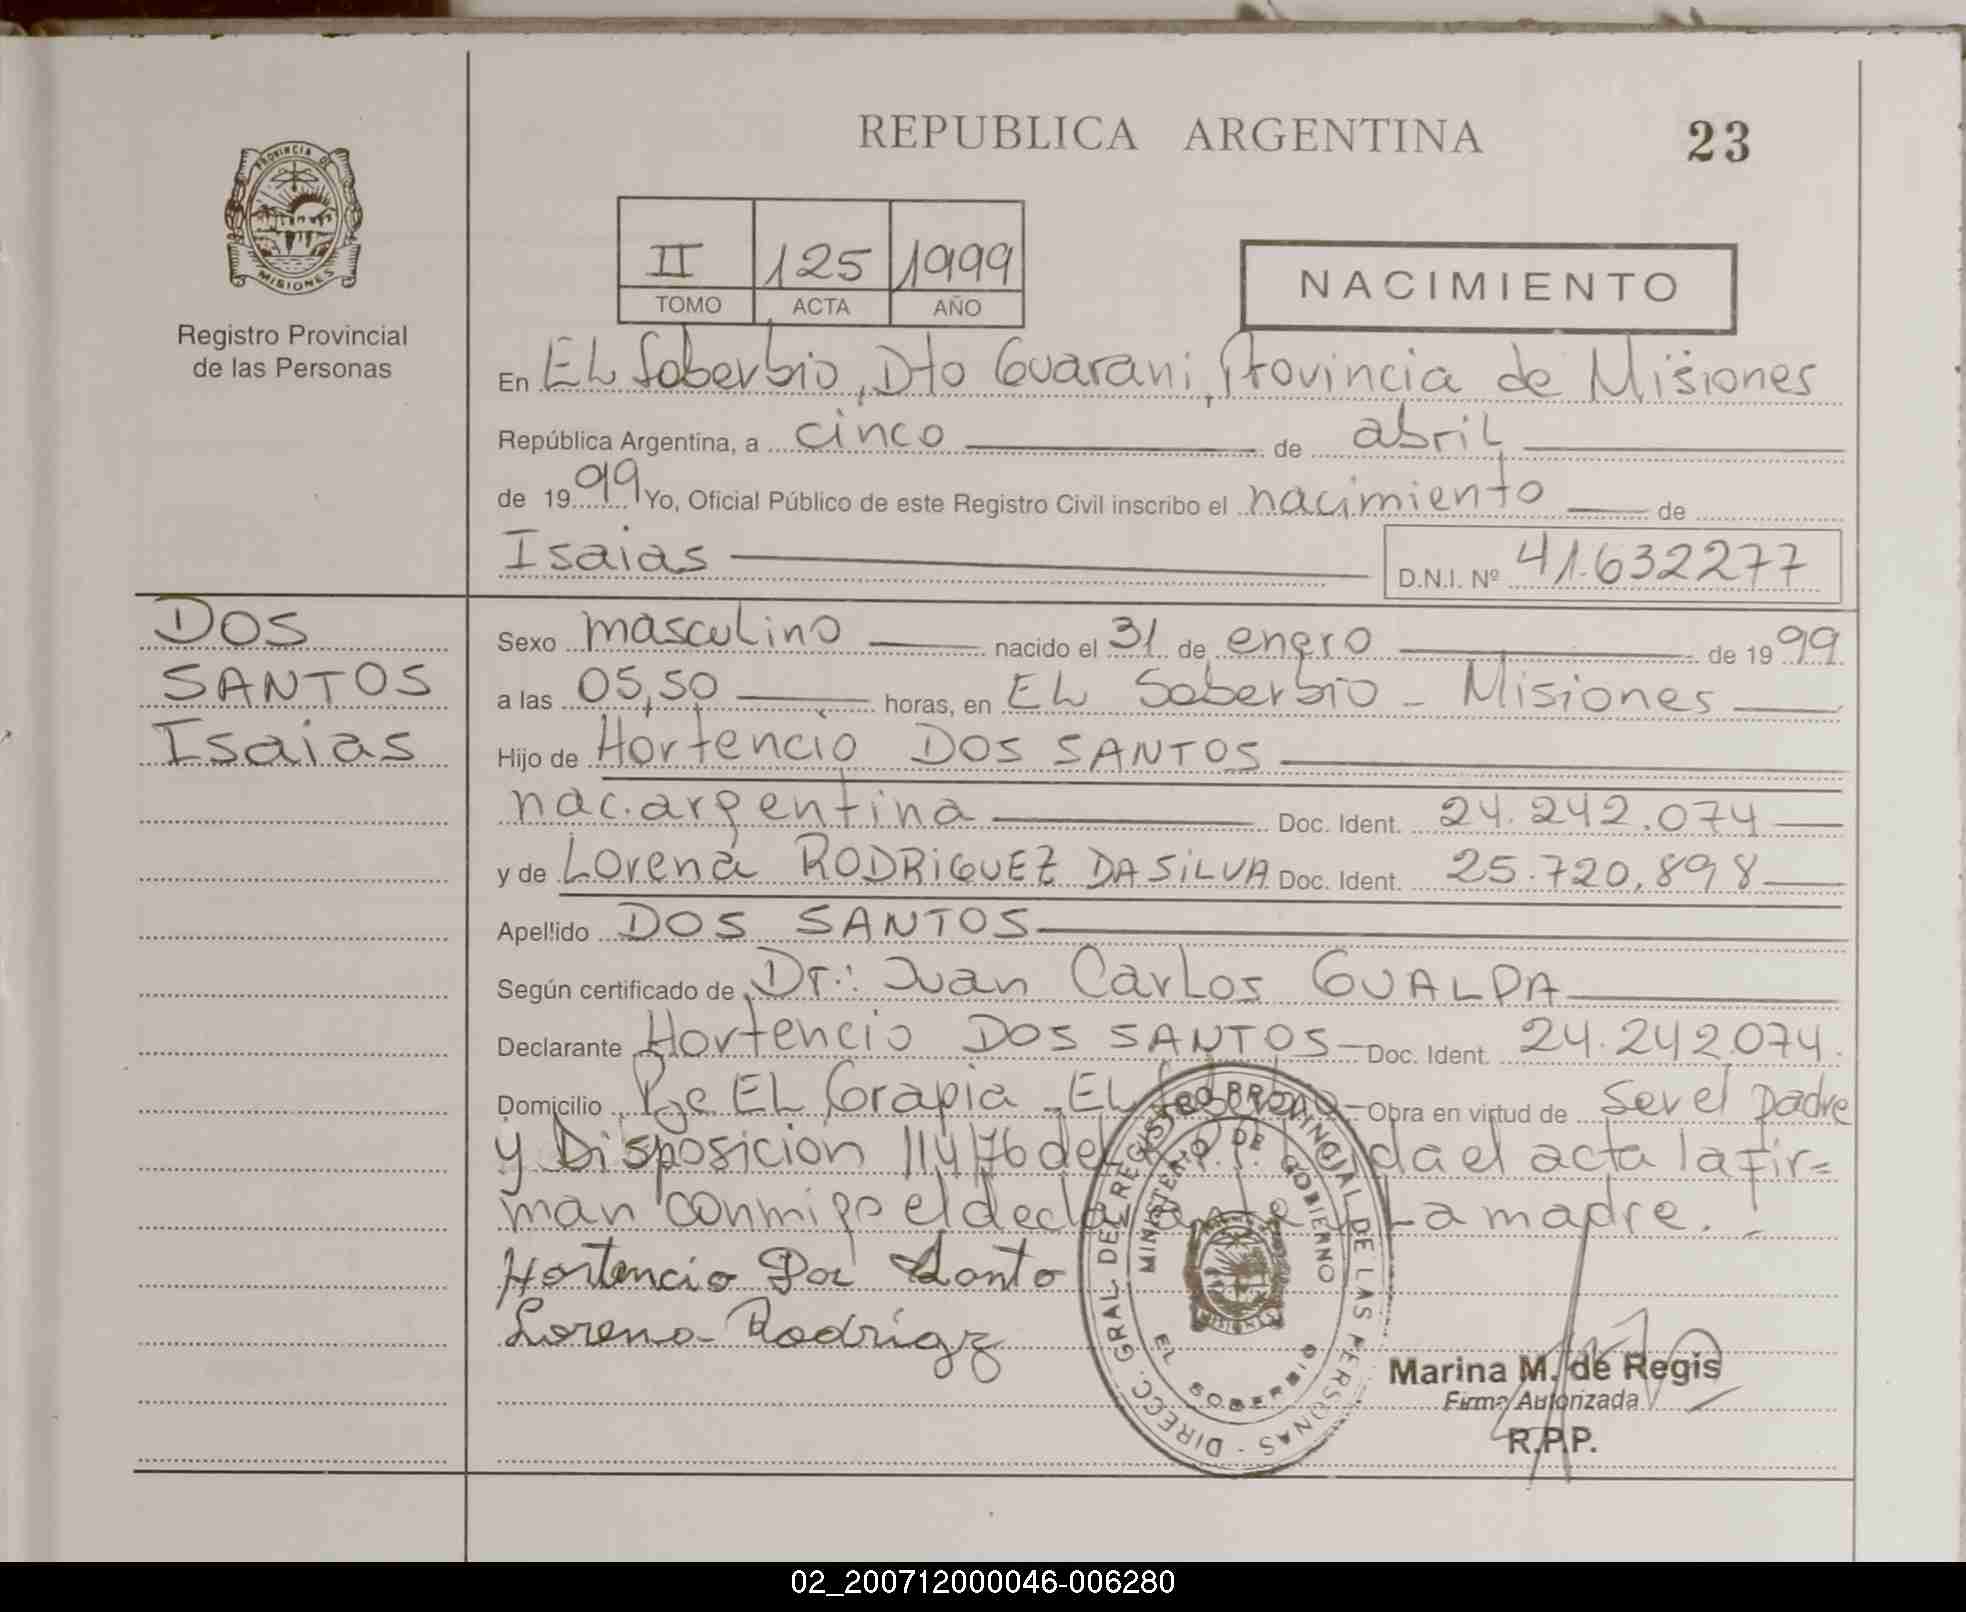 REPUBLICA ARGENTINA
23
PROVINCIA DE
MISIONES
Registro Provincial
de las Personas
II 125 1999
TOMO ACTA AÑO
NACIMIENTO
En EL Soberbio, Dto Guarani, Provincia de Misiones
República Argentina, a cinco de abril
de 1999 Yo, Oficial Público de este Registro Civil inscribo el nacimiento de
Isaias D.N.I. Nº 41.632277
DOS
SANTOS
Isaias
Sexo masculino nacido el 31 de enero de 1999
a las 05,50 horas, en EL Soberbio - Misiones
Hijo de Hortencio DOS SANTOS
nac. argentina Doc. Ident. 24.242.074
y de Lorena RODRiGUEZ DA SiLVA Doc. Ident. 25.720.898
Apellido DOS SANTOS
Según certificado de Dr.: Juan Carlos GUALDA
Declarante Hortencio DOS SANTOS - Doc. Ident. 24.242.074.
Domicilio Pje EL Grapia - EL Soberbio - Obra en virtud de ser el padre
y Disposición 114/76 del R.P.P. Leida el acta la fir=
man conmigo el declarante y La madre.
Hortencio Dos Santo
Lorena Rodrigz
DIRECC. GRAL. DEL REGISTRO PROVINCIAL DE LAS PERSONAS -
MINISTERIO DE GOBIERNO
MISIONES
EL SOBERBIO
Marina M. de Regis
Firma Autorizada
R.P.P.
02_200712000046-006280